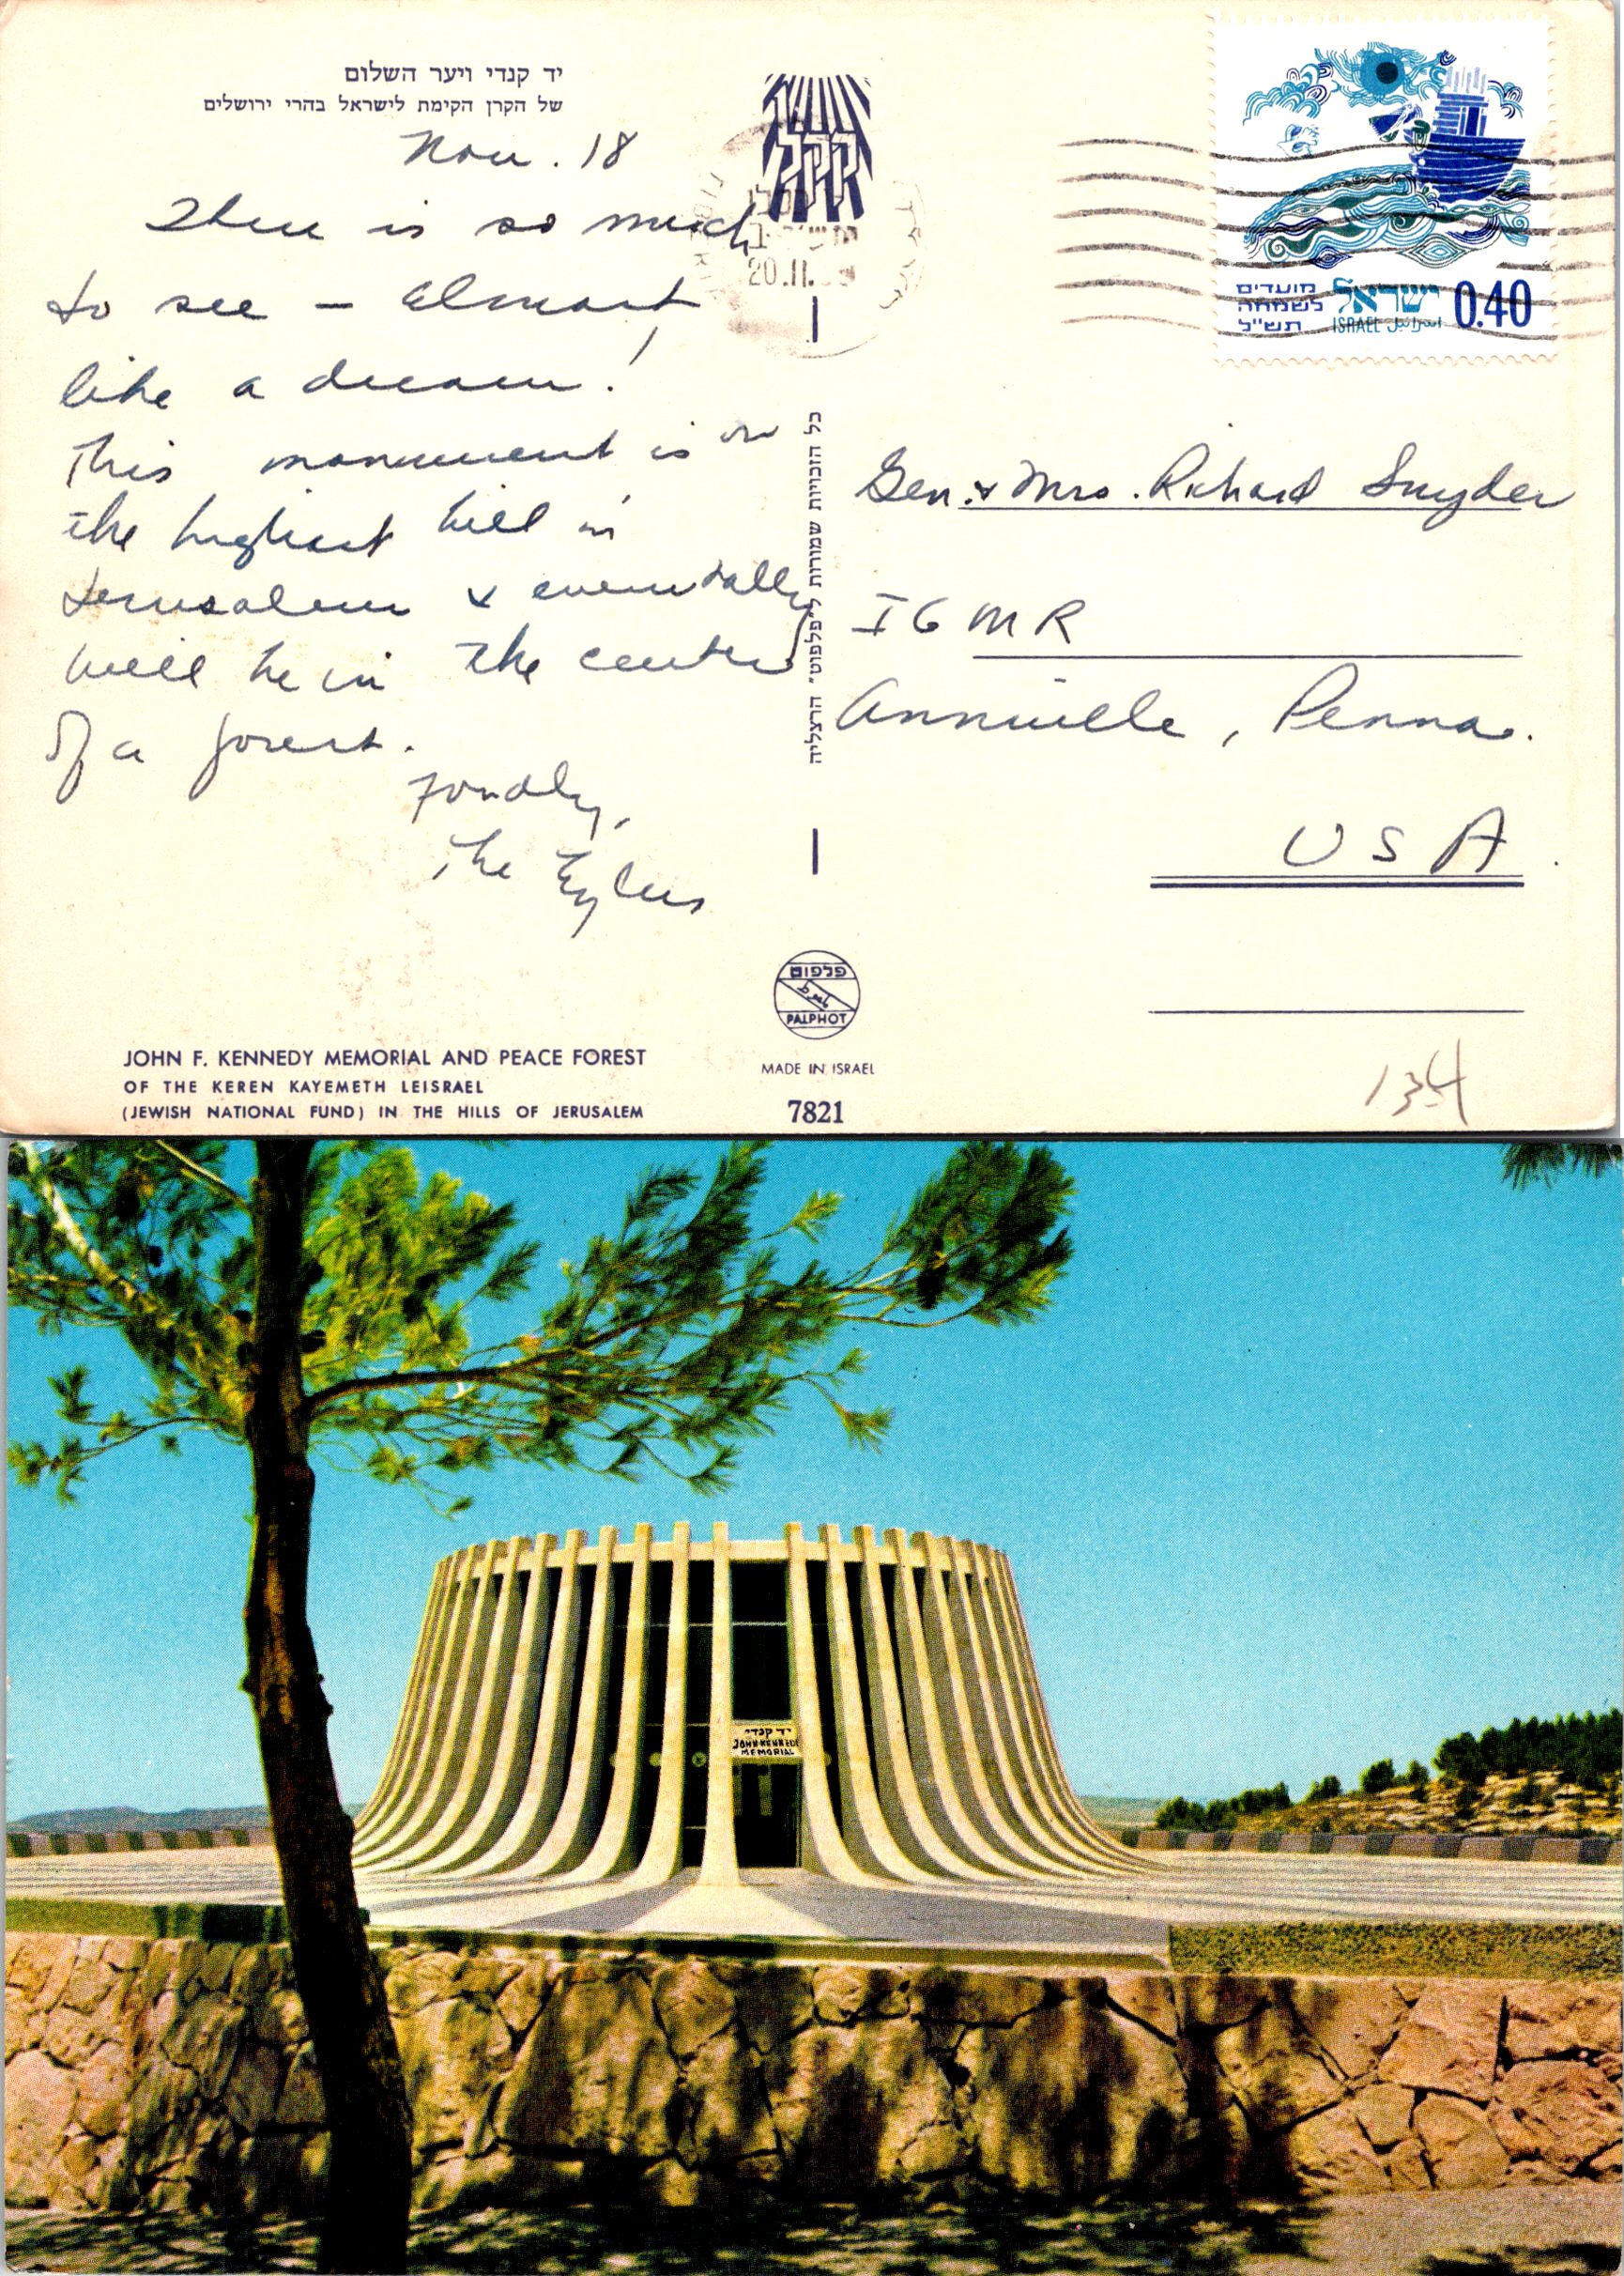 יד קנדי ויער השלום
של הקרן הקימת לישראל בהרי ירושלים
Nov. 18
There is so much
to see - Almost
like a dream!
This monument is on
the highest hill in
Jerusalem & eventally
will be in the center
of a forest.
Fondly,
The
קקל
20.11.
מועדים
לשמחה
תש"ל
ישראל
ISRAEL اسرائيل
0.40
כל הזכויות שמורות ל"פלפוט" הרצליה
Gen. & Mrs. Richard Snyder
I G M R
Annville, Penna.
U S A
פלפוט
PALPHOT
MADE IN ISRAEL
7821
JOHN F. KENNEDY MEMORIAL AND PEACE FOREST
OF THE KEREN KAYEMETH LEISRAEL
(JEWISH NATIONAL FUND) IN THE HILLS OF JERUSALEM
134
יד קנדי
JOHN KENNEDY
MEMORIAL